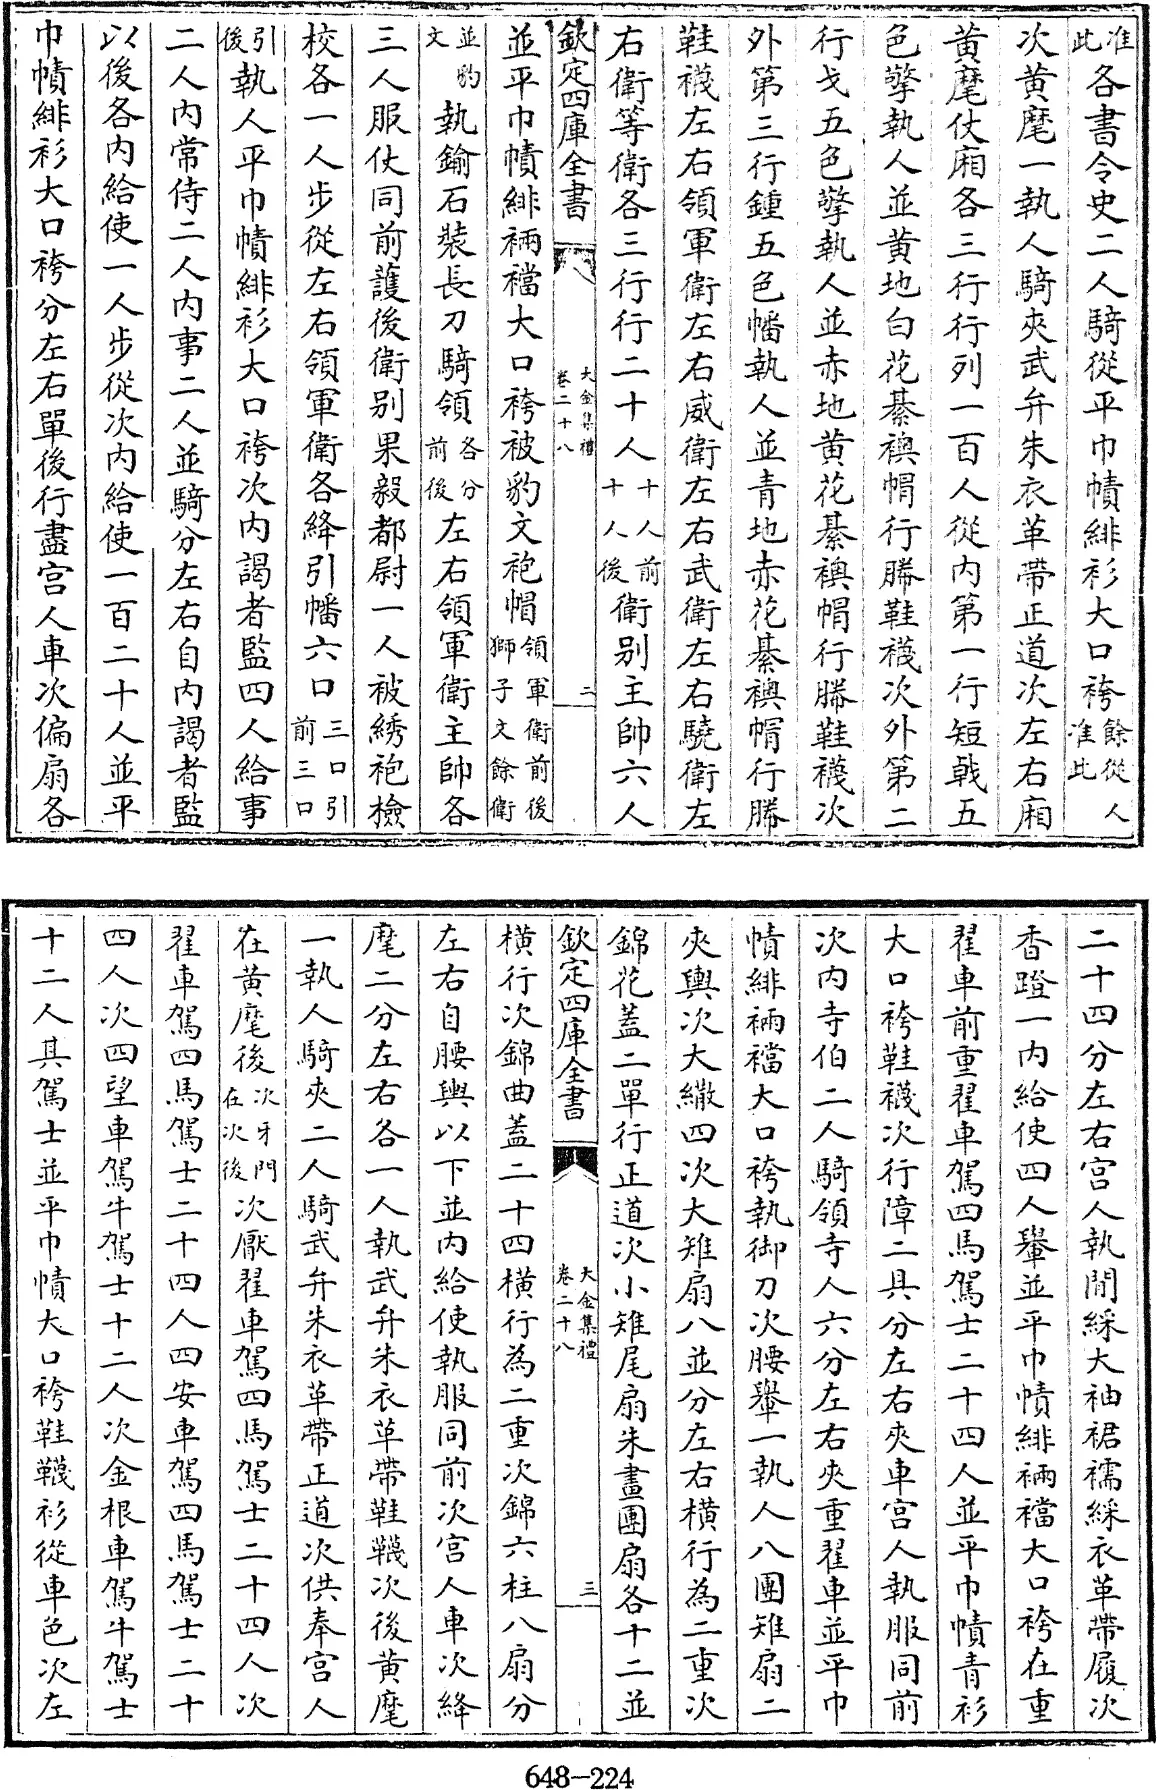 准此各書令史二人騎從平巾幘緋衫大口袴餘從人准此
次黄麾一執人騎夾武弁朱衣革帶正道次左右廂
黄麾仗廂各三行行列一百人從内第一行短戟五
色擎執人並黄地白花綦襖帽行縢鞋襪次外第二
行戈五色擎執人並赤地黄花綦襖帽行縢鞋襪次
外第三行鍾五色幡執人並青地赤花綦襖帽行縢
鞋襪左右領軍衛左右威衛左右武衛左右驍衛左
右衛等衛各三行行二十人十人前十人後衛别主帥六人
欽定四庫全書 大金集禮 卷二十八 二
並平巾幘緋裲襠大口袴被豹文袍帽領軍衛前後獅子文餘衛
並豹文執鍮石裝長刀騎領各分前後左右領軍衛主帥各
三人服仗同前護後衛别果毅都尉一人被綉袍檢
校各一人步從左右領軍衛各絳引幡六口三口引前三口
引後執人平巾幘緋衫大口袴次内謁者監四人給事
二人内常侍二人内事二人並騎分左右自内謁者監
以後各内給使一人步從次内給使一百二十人並平
巾幘緋衫大口袴分左右單後行盡宫人車次偏扇各
二十四分左右宫人執間綵大袖裙襦綵衣革帶履次
香蹬一内給使四人轝並平巾幘緋裲襠大口袴在重
翟車前重翟車駕四馬駕士二十四人並平巾幘青衫
大口袴鞋襪次行障二具分左右夾車宫人執服同前
次内寺伯二人騎領寺人六分左右夾重翟車並平巾
幘緋裲襠大口袴執御刀次腰轝一執人八團雉扇二
夾輿次大繖四次大雉扇八並分左右横行為二重次
錦花蓋二單行正道次小雉尾扇朱畫團扇各十二並
欽定四庫全書 大金集禮 卷二十八 三
横行次錦曲蓋二十四横行為二重次錦六柱八扇分
左右自腰輿以下並内給使執服同前次宫人車次絳
麾二分左右各一人執武弁朱衣革帶鞋韈次後黄麾
一執人騎夾二人騎武弁朱衣革帶正道次供奉宫人
在黄麾後次牙門在次後次厭翟車駕四馬駕士二十四人次
翟車駕四馬駕士二十四人四安車駕四馬駕士二十
四人次四望車駕牛駕士十二人次金根車駕牛駕士
十二人其駕士並平巾幘大口袴鞋韈衫從車色次左
648-224